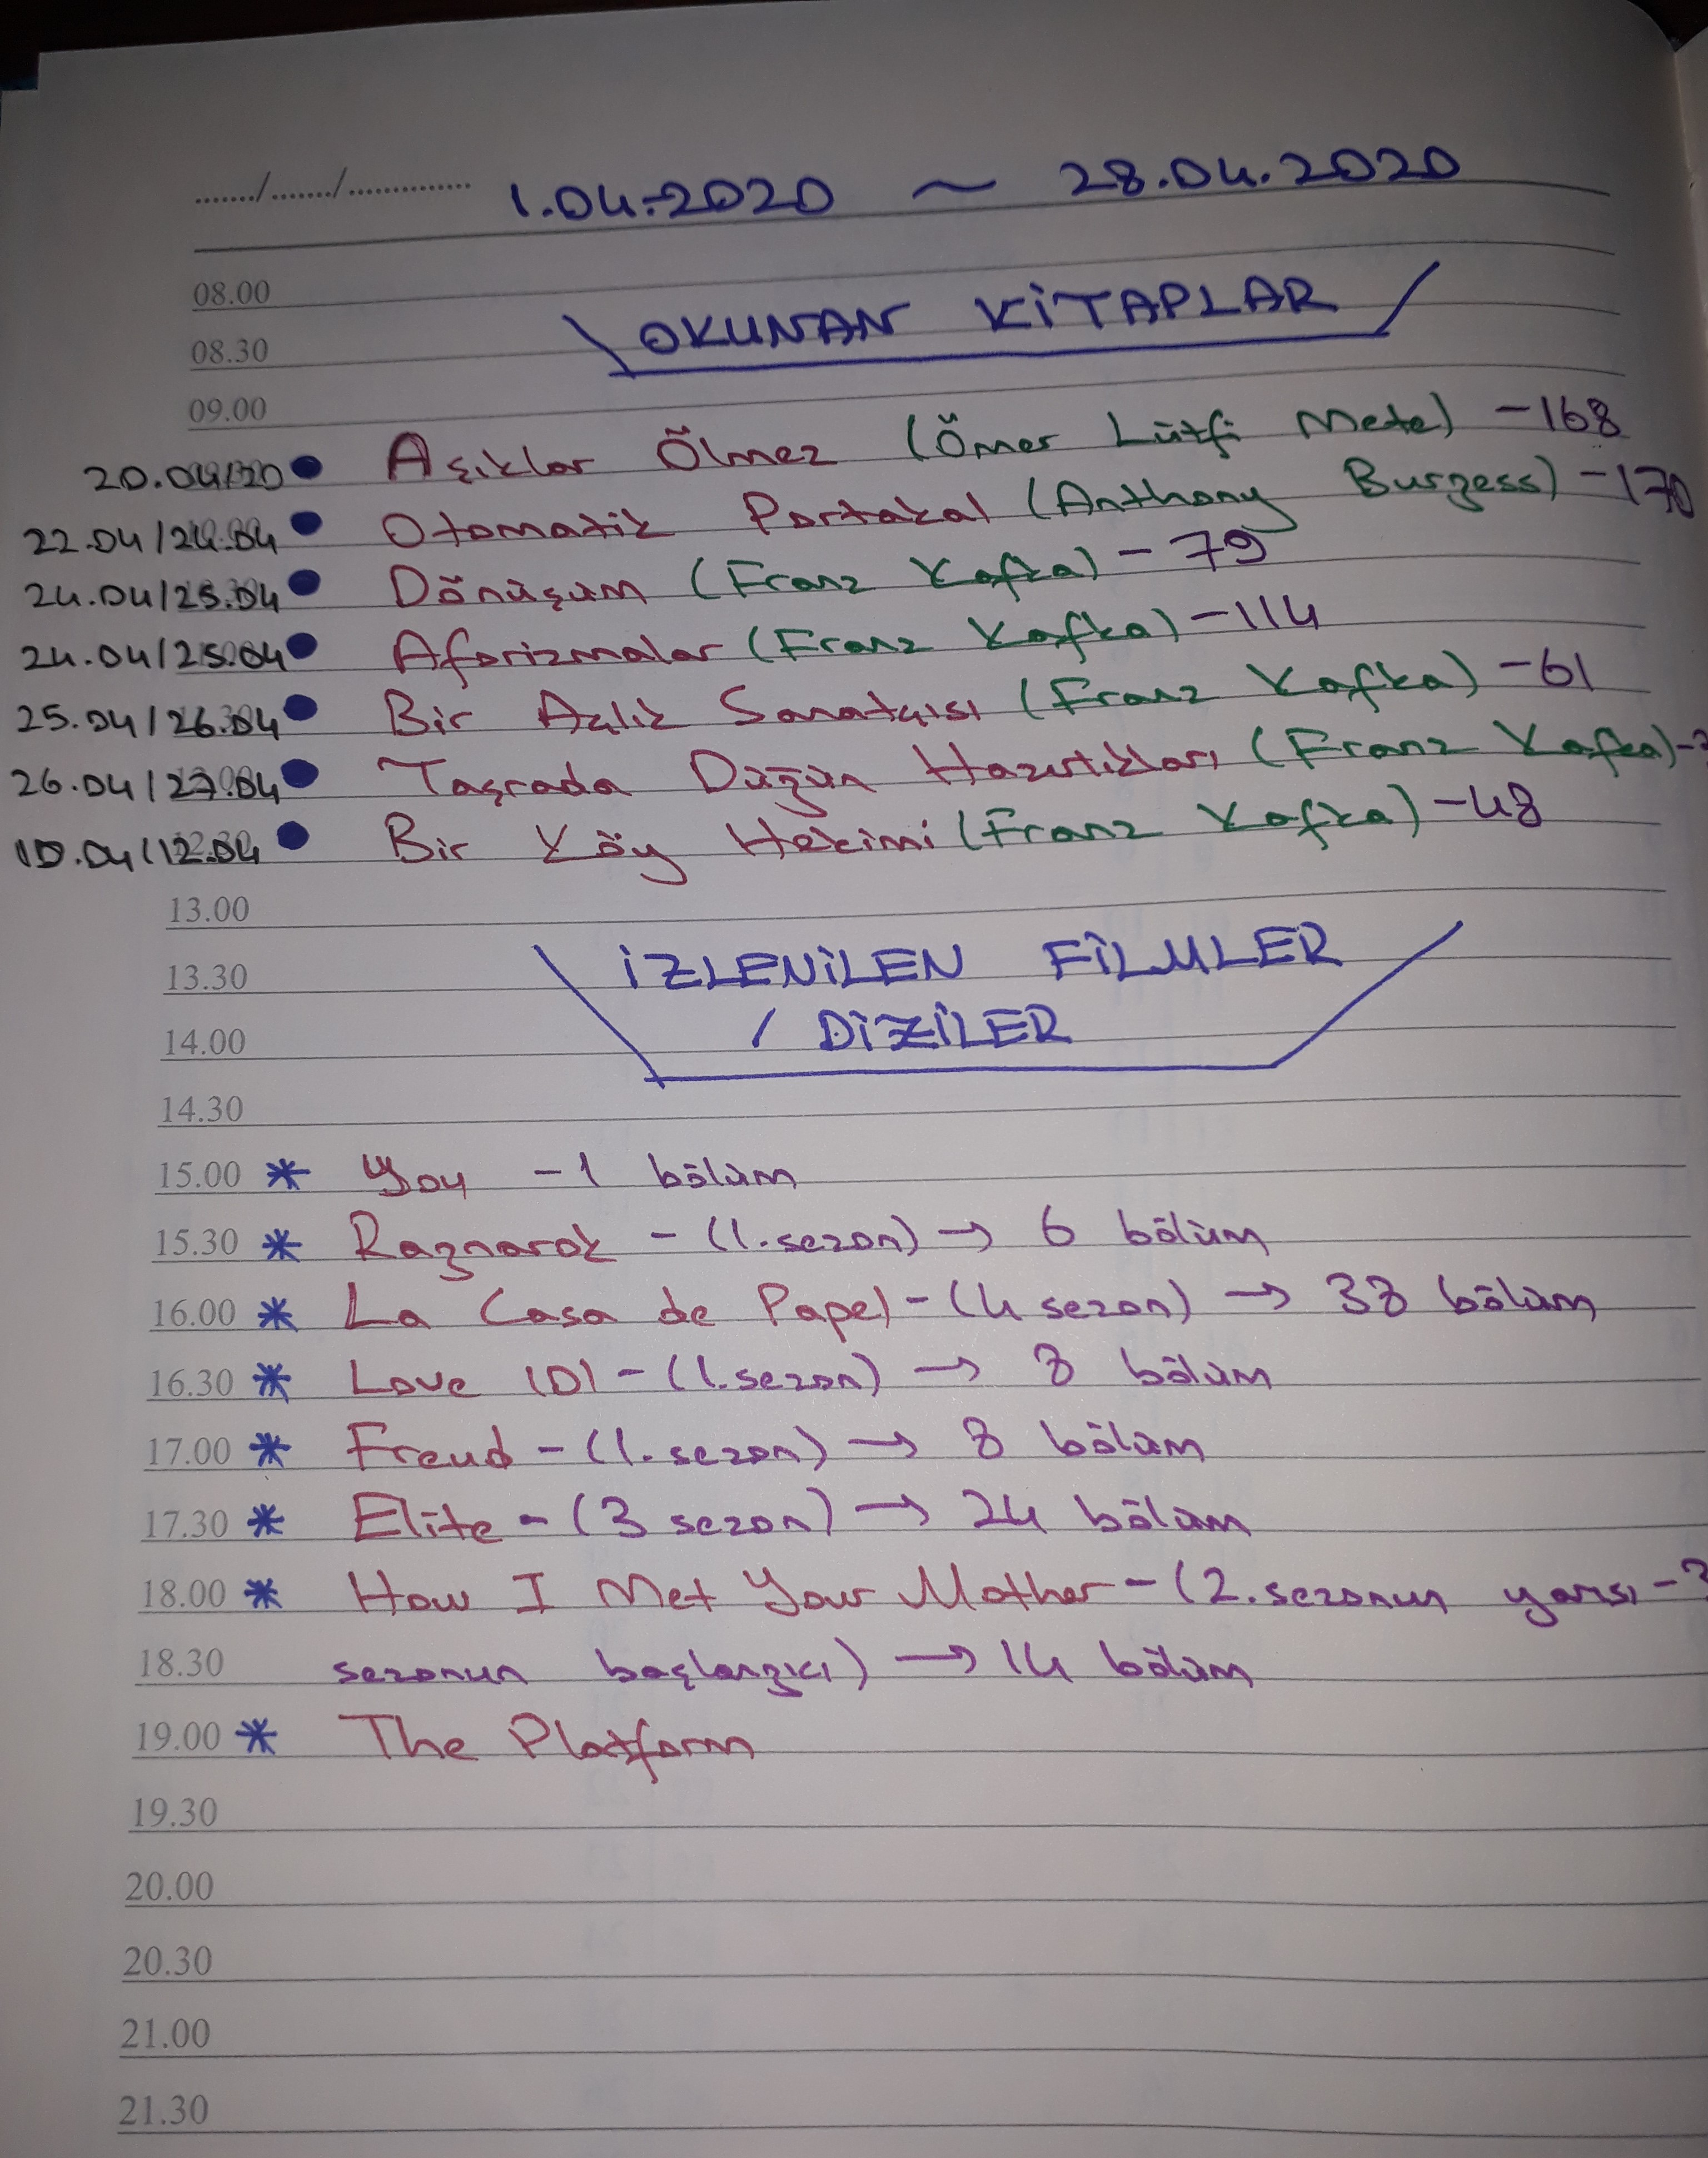 ……/……/…………… 1.04.2020 ~ 28.04.2020
08.00
08.30 OKUNAN KİTAPLAR
09.00
20.04/20 ● Aşıklar Ölmez (Ömer Lütfi Mete) -168
22.04/24.04 ● Otomatik Portakal (Anthony Burgess) -170
24.04/25.04 ● Dönüşüm (Franz Kafka) - 79
24.04/25.04 ● Aforizmalar (Franz Kafka) -114
25.04/26.04 ● Bir Açlık Sanatçısı (Franz Kafka) -61
26.04/27.04 ● Taşrada Düğün Hazırlıkları (Franz Kafka)-
10.04/12.04 ● Bir Köy Hekimi (Franz Kafka) -48
13.00
13.30 İZLENİLEN FİLMLER
14.00 / DİZİLER
14.30
15.00 * You -1 bölüm
15.30 * Ragnarok - (1.sezon) → 6 bölüm
16.00 * La Casa de Papel - (4 sezon) → 38 bölüm
16.30 * Love 101 - (1.sezon) → 8 bölüm
17.00 * Freud - (1.sezon) → 8 bölüm
17.30 * Elite - (3 sezon) → 24 bölüm
18.00 * How I Met Your Mother - (2.sezonun yarısı -3
18.30 sezonun başlangıcı) → 14 bölüm
19.00 * The Platform
19.30
20.00
20.30
21.00
21.30